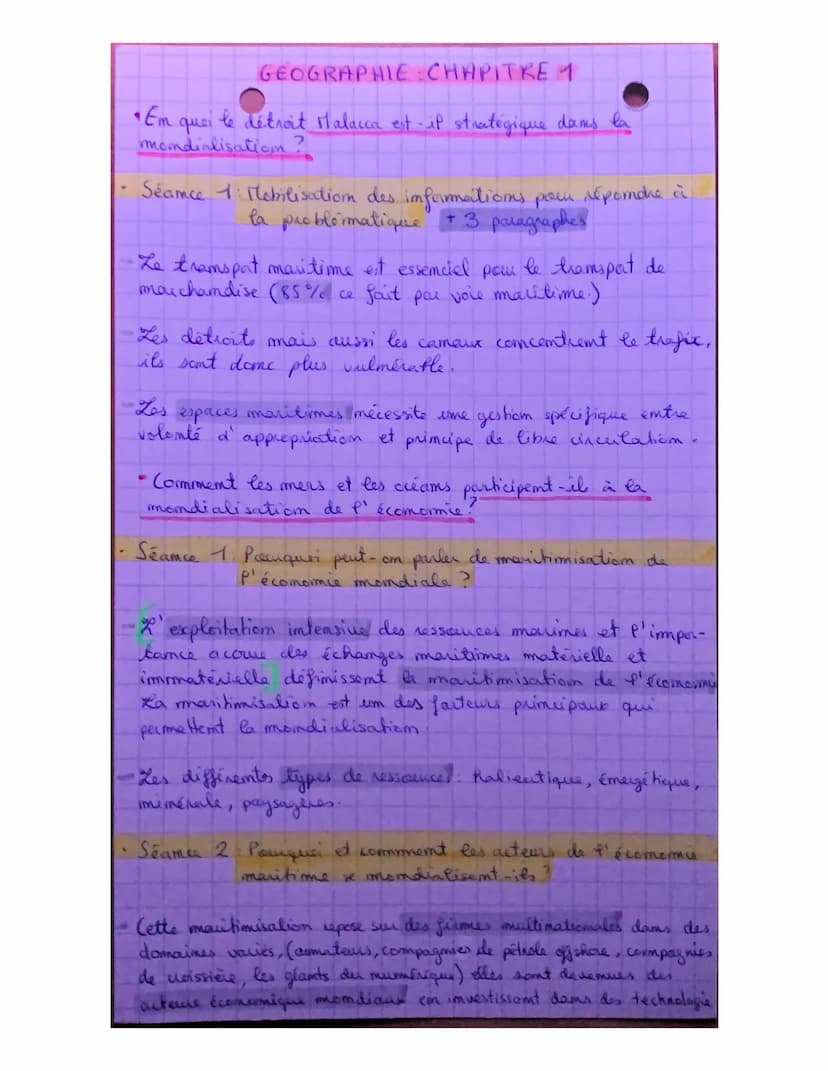 GEOGRAPHIE : CHAPITRE 1
• En quoi le détroit Malacca est-il stratégique dans la
mondialisation ?
• Séance 1 : Mobilisation des informations pour répondre à
la problématique + 3 paragraphes
- Le transport maritime est essenciel pour le transport de
marchandise (85% ce fait par voie maritime.)
- Les détroits mais aussi les canaux concentrent le trafic,
ils sont donc plus vulnérable.
- Les espaces maritimes nécessite une gestion spécifique entre
volonté d'appropriation et principe de libre circulation.
• Comment les mers et les océans participent-il à la
mondialisation de l'économie ?
• Séance 1 : Pourquoi peut-on parler de maritimisation de
l'économie mondiale ?
- [L'exploitation intensive des ressources marines et l'impor-
tance accrue des échanges maritimes matérielle et
immatérielle] définissent la maritimisation de l'économie
La maritimisation est un des facteurs principaux qui
permettent la mondialisation.
- Les différentes types de ressources : halieutique, énergétique,
minérale, paysagères.
• Séance 2 : Pourquoi et comment les acteurs de l'économie
maritime se mondialisent-ils ?
- Cette maritimisation repose sur des firmes multinationales dans des
domaines variés, (armateurs, compagnies de pétrole offshore, compagnies
de croisière, les géants du numérique) elles sont devenues des
acteurs économique mondiaux en investissant dans des technologie